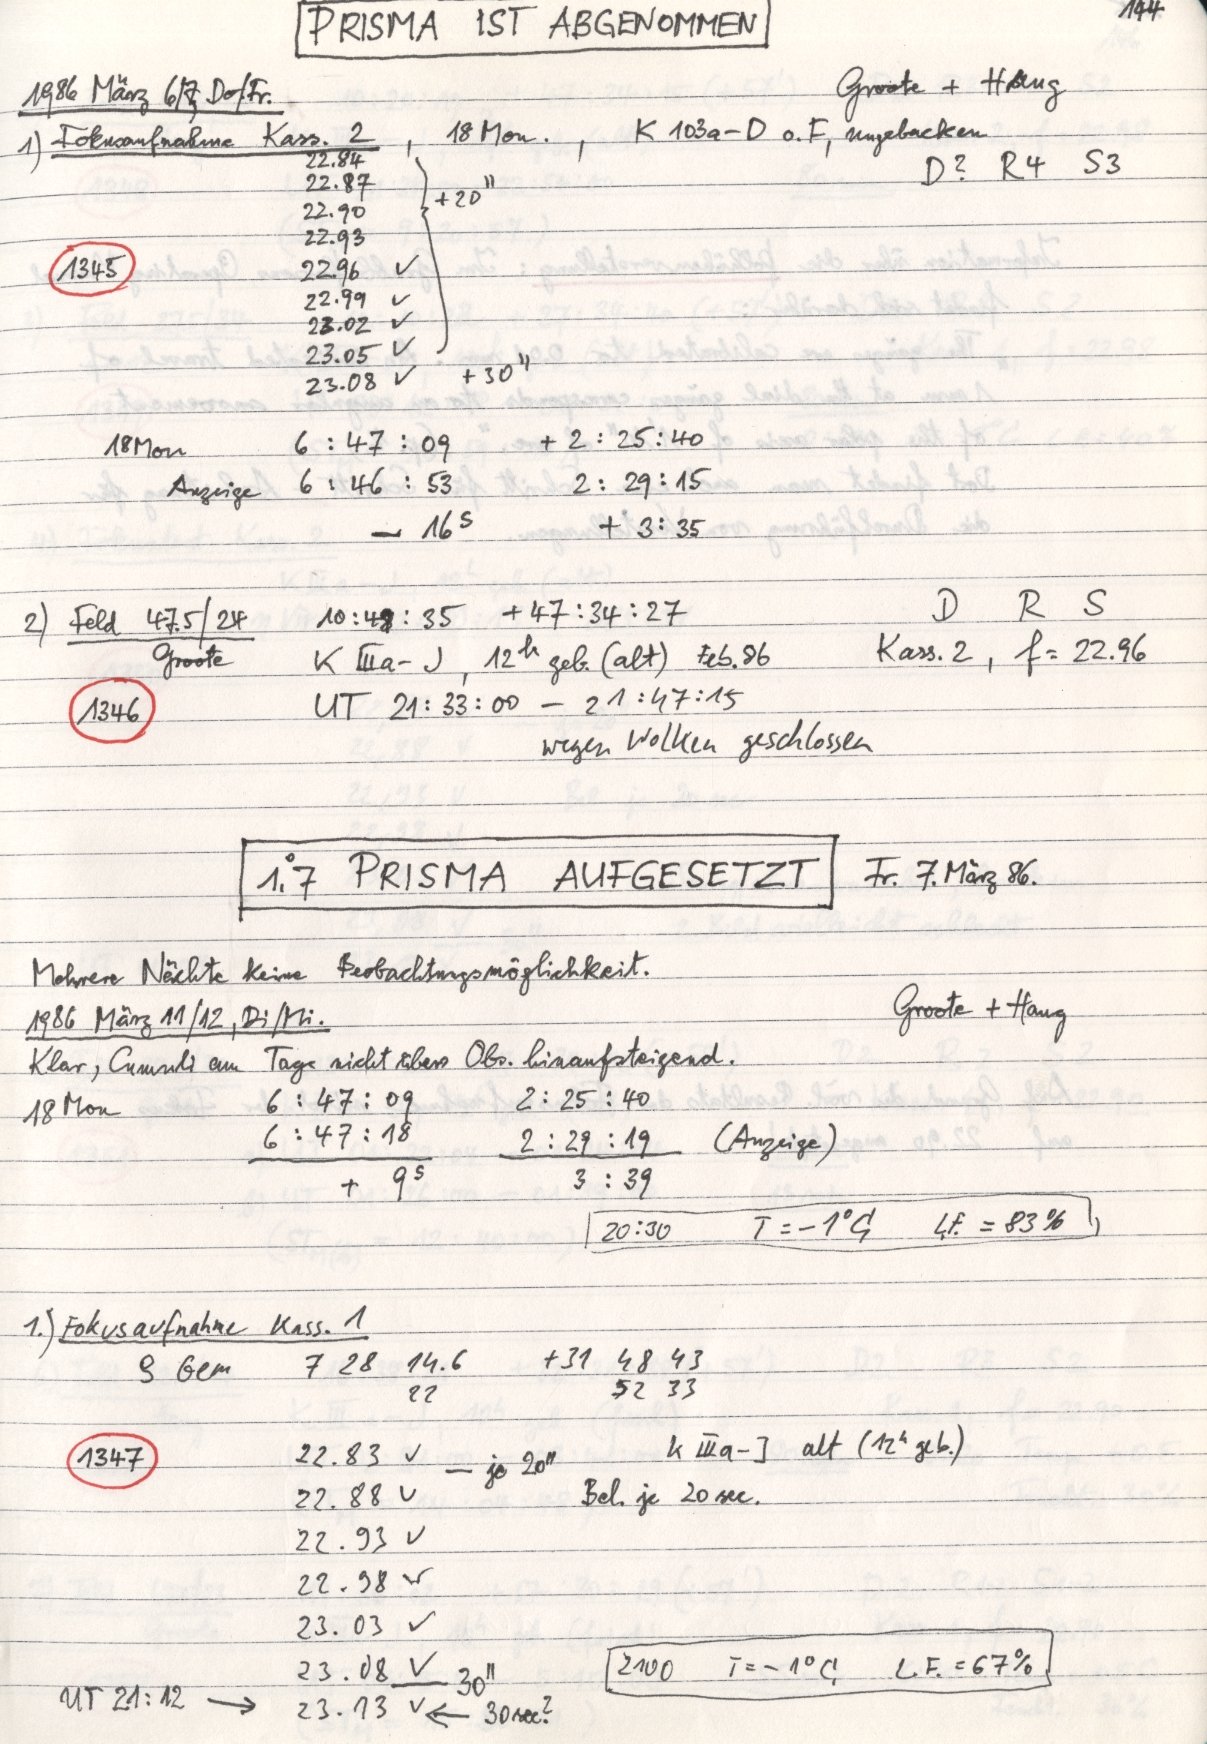 144
PRISMA IST ABGENOMMEN
1986 März 6/7, Do/Fr. Groote + Haug
1) Fokusaufnahme Kass. 2 , 18 Mon. , K 103a-D o.F, ungebacken
D? R4 S3
22.84
22.87
22.90 +20"
22.93
1345 22.96 ✓
22.99 ✓
23.02 ✓
23.05 ✓
23.08 ✓ +30"
18 Mon 6 : 47 : 09 + 2 : 25 : 40
Anzeige 6 : 46 : 53 2 : 29 : 15
- 16s + 3 : 35
2) Feld 47.5/24 10:48:35 +47:34:27 D R S
Groote K IIIa-J, 12h geb. (alt) Feb. 86 Kass. 2, f = 22.96
1346 UT 21:33:00 - 21:47:15
wegen Wolken geschlossen
1.°7 PRISMA AUFGESETZT Fr. 7. März 86.
Mehrere Nächte keine Beobachtungsmöglichkeit.
1986 März 11/12, Di/Mi. Groote + Haug
Klar, Cumuli am Tage nicht übers Obs. hinaufsteigend.
18 Mon 6 : 47 : 09 2 : 25 : 40
6 : 47 : 18 2 : 29 : 19 (Anzeige)
+ 9s 3 : 39
20:30 T = -1°C, L.F. = 83%
1.) Fokusaufnahme Kass. 1
ρ Gem 7 28 14.6 +31 48 43
22 52 33
1347 22.83 ✓ - je 20" K IIIa-J alt (12h geb.)
22.88 ✓ Bel. je 20 sec.
22.93 ✓
22.98 ✓
23.03 ✓
23.08 ✓ 30" 2100 T = -1°C, L.F. = 67%
UT 21:12 → 23.13 ✓ ← 30 sec?